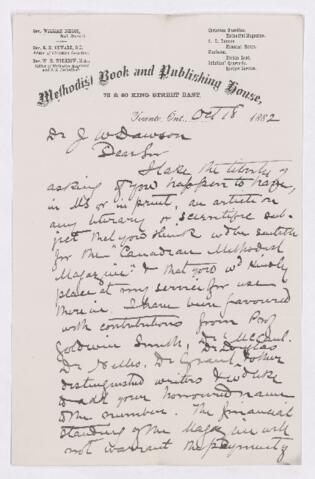 Rev. WILLIAM BRIGGS,
Book Steward.
Rev. E. H. DEWART, D.D.
Editor of Christian Guardian.
Rev. W. H. WITHROW, M.A.
Editor of Methodist Magazine
and S. S. Periodicals.
Christian Guardian.
Methodist Magazine.
S. S. Banner.
Pleasant Hours.
Sunbeam.
Berean Leaf.
Scholars' Quarterly.
Review Service.
Methodist Book and Publishing House,
78 & 80 KING STREET EAST,
Toronto, Ont., Oct 18 1882
Dr J. W Dawson
Dear Sir
I take the liberty of
asking if you happen to have,
in MS or in print, an article on
any literary or scientific sub-
ject that you think wd be suitable
for the "Canadian Methodist
Magazine" & that you wd kindly
place at my service for use
therein. I have been favoured
with contributions from Prof
Goldwin Smith, Dr McCaul,
Dr Douglas
Dr Nelles, Dr Grant, & other
distinguished writers & wd like
to add your honoured name
to the number. The financial
standing of the Magazine will
not warrant the payment of